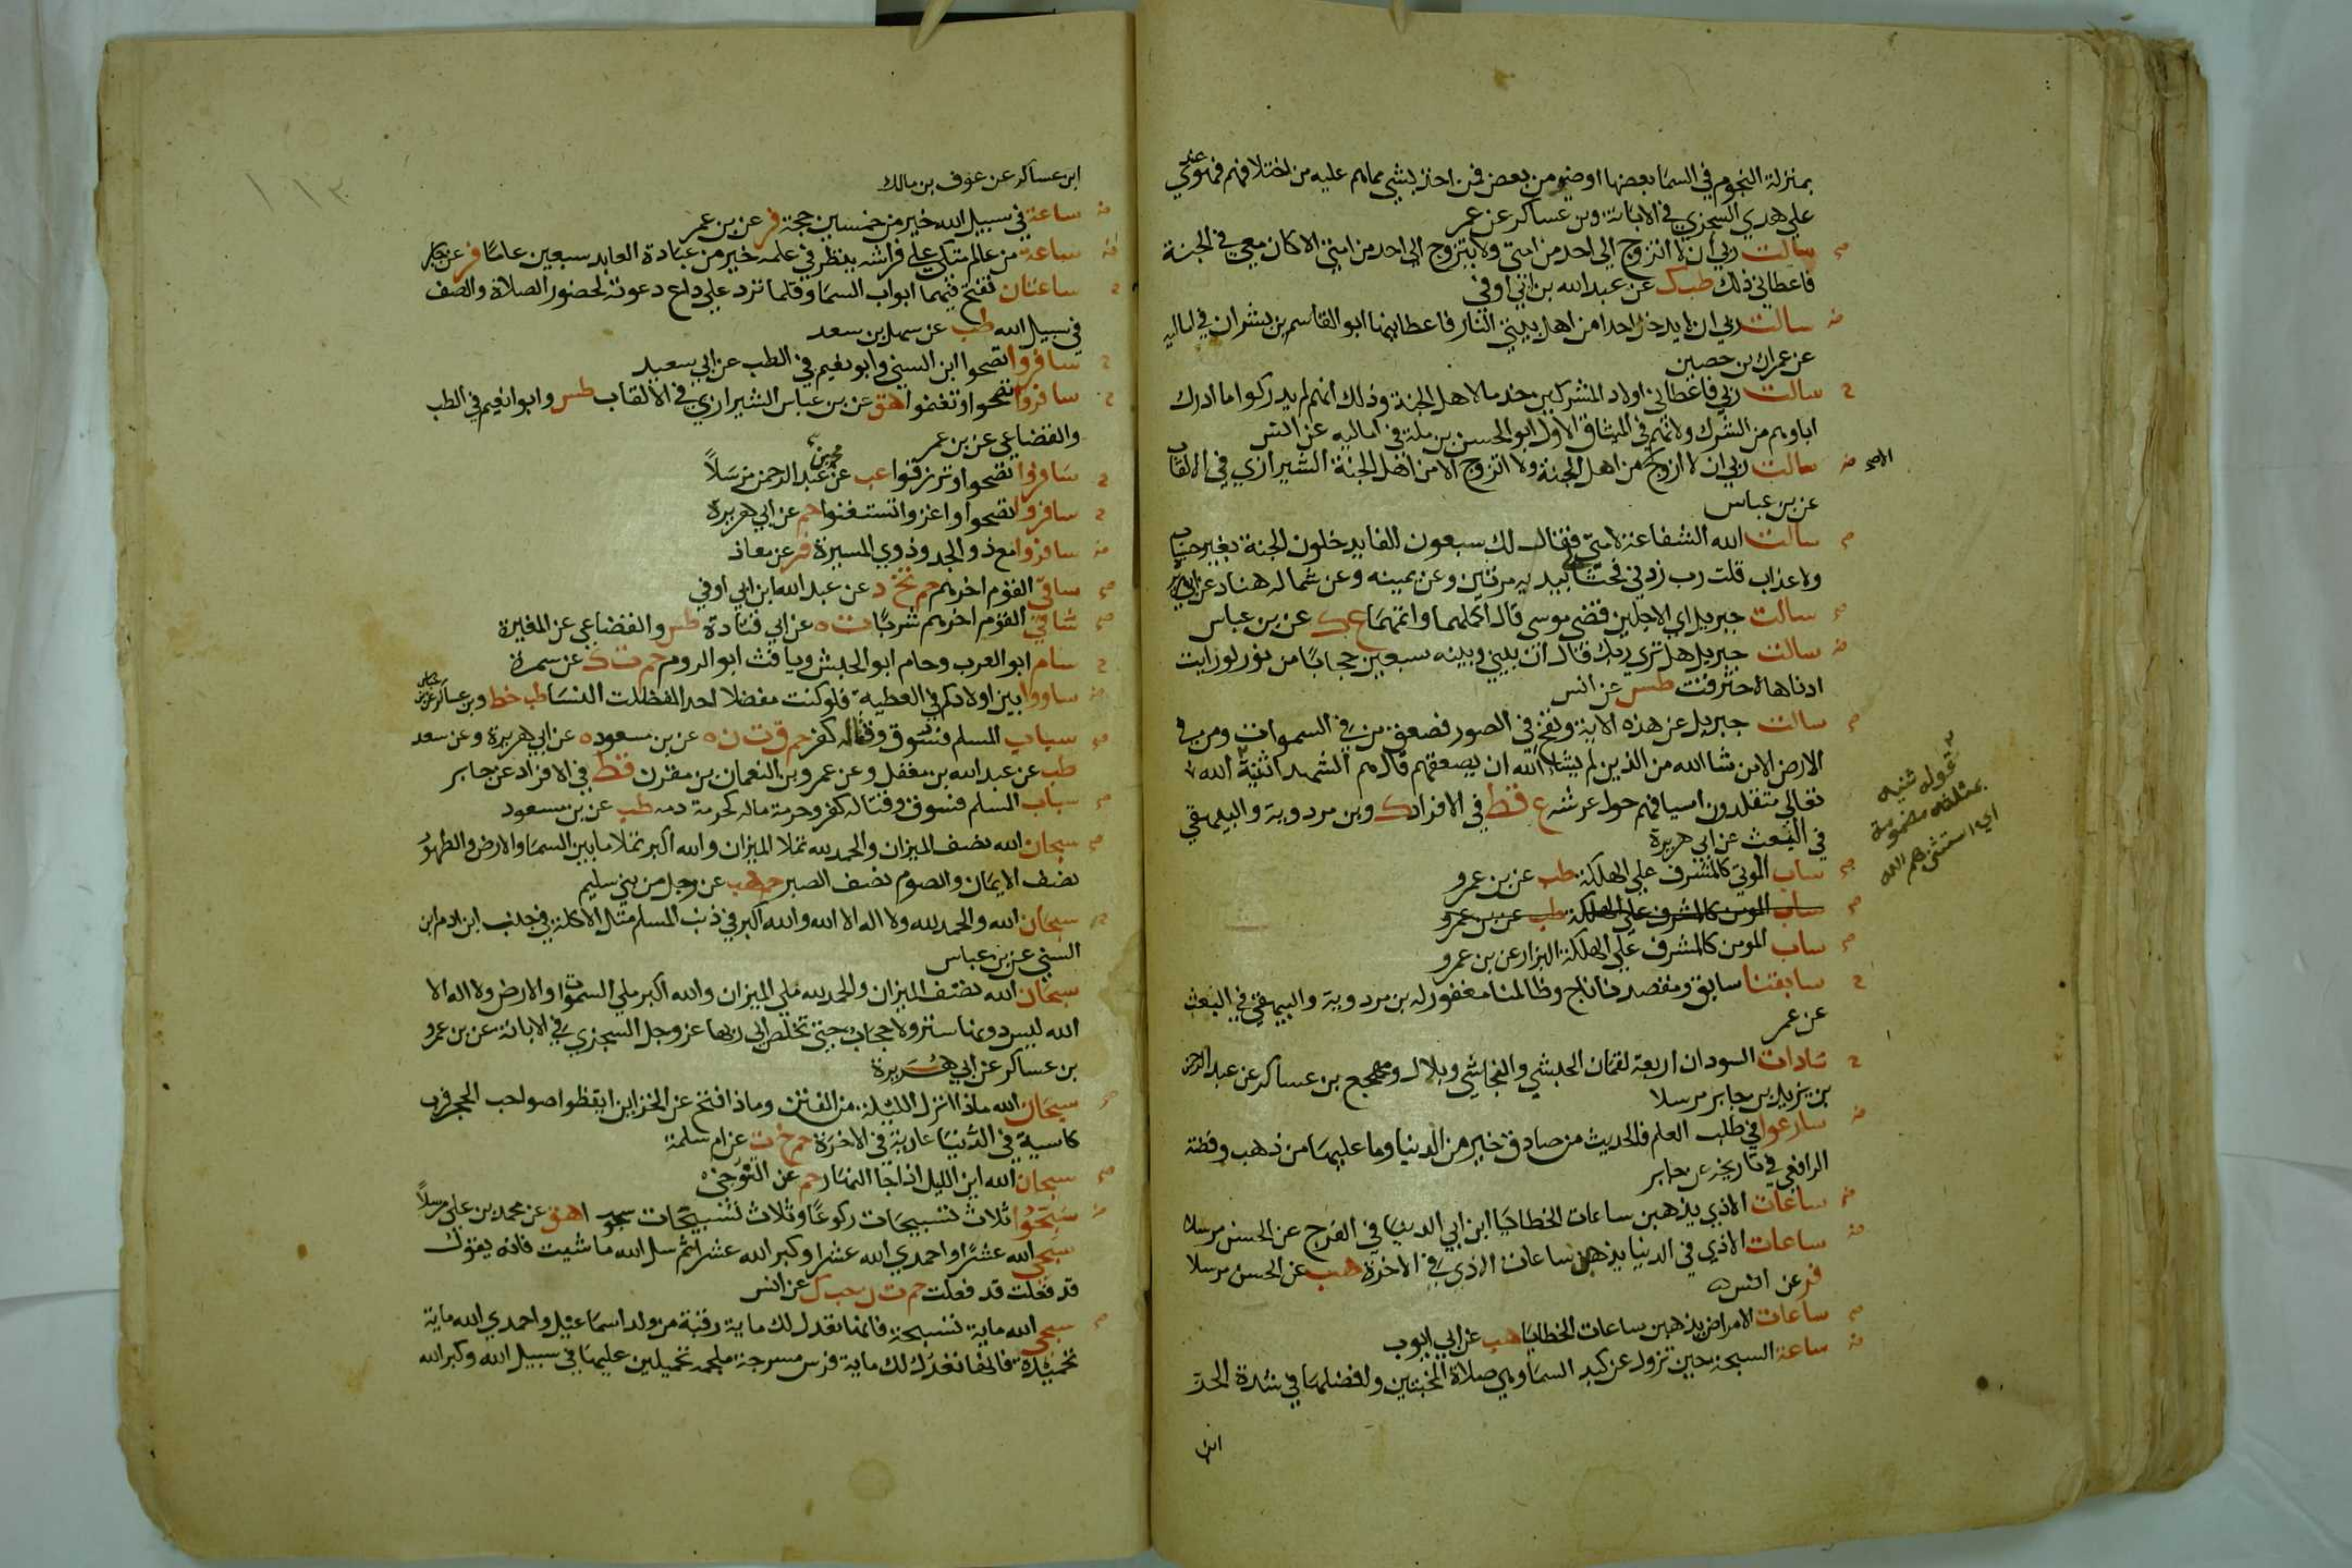 بمنزلة النجوم في السما بعضها اوضو من بعض فمن اخذ بشي مما هم عليه من اختلافهم فهو عندي
علي هدي السجزي في الابانة وبن عساكر عن عمر
سالت ربي ان لا اتزوج الي احد من امتي ولا يتزوج الي احد من امتي الا كان معي في الجنة
فاعطاني ذلك طب ك عن عبد الله بن ابي اوفي
سالت ربي ان لا يدخل احدا من اهل بيتي النار فاعطانيها ابو القاسم بن بشران في اماليه
عن عمران بن حصين
سالت ربي فاعطاني اولاد المشركين خدما لاهل الجنة وذلك انهم لم يدركوا ما ادرك
اباوهم من الشرك ولانهم في الميثاق الاول ابو الحسن بن ملة في اماليه عن انس
سالت ربي ان لا ازوج من اهل الجنة ولا اتزوج الا من اهل الجنة الشيرازي في الالقاب
عن بن عباس
سالت الله الشفاعة لامتي فقال لك سبعون الفا يدخلون الجنة بغير حساب
ولا عذاب قلت رب زدني فحثا لي بيديه مرتين وعن يمينه وعن شماله هناد عن ابي هريرة
سالت جبريل اي الاجلين قضي موسي قال اكملهما واتمهما ع ك عن بن عباس
سالت جبريل هل تري ربك قال ان بيني وبينه سبعين حجابا من نور لو رايت
ادناها لاحترقت طس عن انس
سالت جبريل عن هذه الاية ونفخ في الصور فصعق من في السموات ومن في
الارض الا من شا الله من الذين لم يشا الله ان يصعقهم قال هم الشهدا ثنية الله
تعالي متقلدون اسيافهم حول عرشه ع قط في الافراد ك وبن مردوية والبيهقي
في البعث عن ابي هريرة
ساب الموتي كالمشرف علي الهلكة طب عن بن عمرو
ساب المومن كالمشرف علي الهلكة طب عن بن عمرو
ساب المومن كالمشرف علي الهلكة البزار عن بن عمرو
سابقنا سابق ومقتصدنا ناج وظالمنا مغفور له بن مردوية والبيهقي في البعث
عن عمر
سادات السودان اربعة لقمان الحبشي والنجاشي وبلال ومهجع بن عساكر عن عبد الرحمن
بن يزيد بن جابر مرسلا
سارعوا في طلب العلم فالحديث من صادق خير من الدنيا وما عليها من ذهب وفضة
الرافعي في تاريخه عن جابر
ساعات الاذي يذهبن ساعات الخطايا ابن ابي الدنيا في الفرج عن الحسن مرسلا
ساعات الاذي في الدنيا يذهبن ساعات الاذي في الاخرة هب عن الحسن مرسلا
فر عن انس
ساعات الامراض يذهبن ساعات الخطايا هب عن ابي ايوب
ساعة السبحة حين تزول عن كبد السما وهي صلاة المخبتين وافضلها في شدة الحر
ابن
الاصح
قوله ثنيه
بمثلثه مضمومة
اي استثني هم الله
١١٣
ابن عساكر عن عوف بن مالك
ساعة في سبيل الله خير من خمسين حجة فر عن بن عمر
ساعة من عالم متكي علي فراشه ينظر في علمه خير من عبادة العابد سبعين عاما فر عن جابر
ساعتان تفتح فيهما ابواب السما وقلما ترد علي داع دعوته لحضور الصلاة والصف
في سبيل الله طب عن سهل بن سعد
سافروا تصحوا ابن السني وابو نعيم في الطب عن ابي سعيد
سافروا تصحوا وتغنموا هق عن بن عباس الشيرازي في الالقاب طس وابو نعيم في الطب
والقضاعي عن بن عمر
سافروا تصحوا وترزقوا عب عن محمد بن عبد الرحمن مرسلا
سافروا تصحوا واغزوا تستغنوا حم عن ابي هريرة
سافروا مع ذو الجد وذوي الميسرة فر عن معاذ
ساقي القوم اخرهم حم تخ د عن عبد الله ابن ابي اوفي
ساقي القوم اخرهم شربا ت ه عن ابي قتادة طس والقضاعي عن المغيرة
سام ابو العرب وحام ابو الحبش ويافث ابو الروم حم ت ك عن سمرة
ساووا بين اولادكم في العطية فلو كنت مفضلا احدا لفضلت النسا طب خط وبن عساكر عن بن عباس
سباب المسلم فسوق وقتاله كفر حم ق ت ن ه عن بن مسعود ه عن ابي هريرة وعن سعد
طب عن عبد الله بن مغفل وعن عمرو بن النعمان بن مقرن قط في الافراد عن جابر
سباب المسلم فسوق وقتاله كفر وحرمة ماله كحرمة دمه طب عن بن مسعود
سبحان الله نصف الميزان والحمد لله تملا الميزان والله اكبر تملا ما بين السما والارض والطهور
نصف الايمان والصوم نصف الصبر حم هب عن رجل من بني سليم
سبحان الله والحمد لله ولا اله الا الله والله اكبر في ذنب المسلم مثل الاكلة في جنب ابن ادم ابن
السني عن بن عباس
سبحان الله نصف الميزان والحمد لله ملي الميزان والله اكبر ملي السموات والارض ولا اله الا
الله ليس دونها ستر ولا حجاب حتي تخلص الي ربها عز وجل السجزي في الابانة عن بن عمرو
بن عساكر عن ابي هريرة
سبحان الله ماذا انزل الليلة من الفتن وماذا فتح من الخزاين ايقظوا صواحب الحجر فرب
كاسية في الدنيا عارية في الاخرة حم خ ت عن ام سلمة
سبحان الله اين الليل اذا جا النهار حم عن التنوخي
سبحوا ثلاث تسبيحات ركوعا وثلاث تسبيحات سجودا هق عن محمد بن علي مرسلا
سبحي الله عشرا واحمدي الله عشرا وكبر الله عشرا ثم سل الله ما شيت فانه يقول
قد فعلت قد فعلت حم ت ن حب ك عن انس
سبحي الله ماية تسبيحة فانها تعدل لك ماية رقبة من ولد اسماعيل واحمدي الله ماية
تحميدة فانها تعدل لك ماية فرس مسرجة ملجمة تحملين عليها في سبيل الله وكبر الله